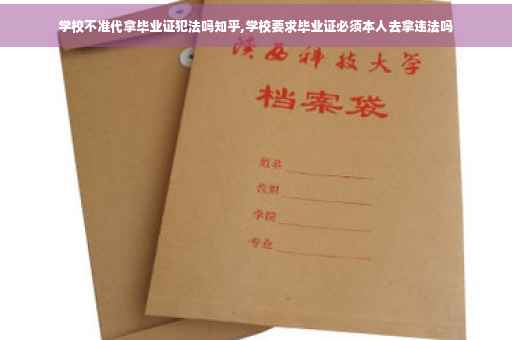 学校不准代拿毕业证犯法吗知乎,学校要求毕业证必须本人去拿违法吗
陕西科技大学
档案袋
姓名
学院
专业